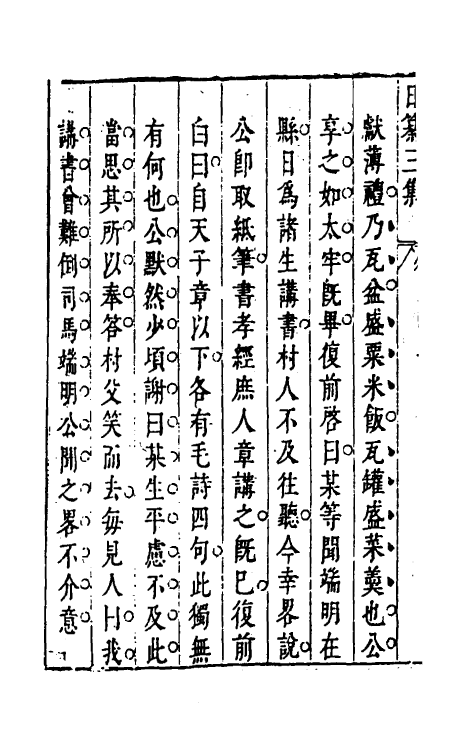 日纂三集
獻薄禮乃瓦盆盛粟米飯瓦罐盛菜羹也公
享之如太牢旣畢復前啓曰某等聞端明在
縣日爲諸生講書村人不及往聽今幸畧說
公卽取紙筆書孝經庶人章講之旣已復前
白曰自天子章以下各有毛詩四句此獨無
有何也公默然少頃謝曰某生平慮不及此
當思其所以奉答村父笑而去每見人曰我
講書曾難倒司馬端明公聞之畧不介意